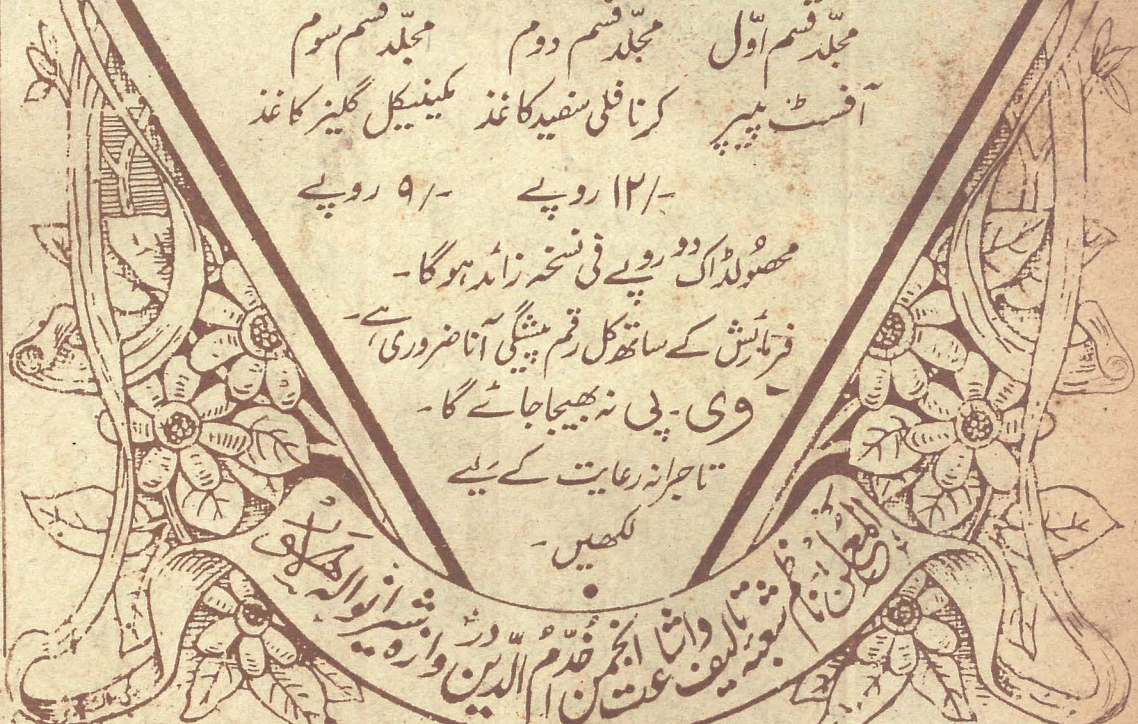 مجلّد قسم اوّل مجلّد قسم دوم مجلّد قسم سوم
آفسٹ پیپر کرنافلی سفید کاغذ مکینیکل گلیز کاغذ
۱۲/- روپے ۹/- روپے
محصُولڈاک دو روپے فی نسخہ زائد ہوگا۔
فرمائش کے ساتھ کل رقم پیشگی آنا ضروری ہے۔
وی۔پی نہ بھیجا جائے گا۔
تاجرانہ رعایت کے لیے
لکھیں۔
المعلن ناظم شعبۂ تالیف و اشاعت انجمن خُدّامُ الدّین دروازہ شیرانوالہ لاہور